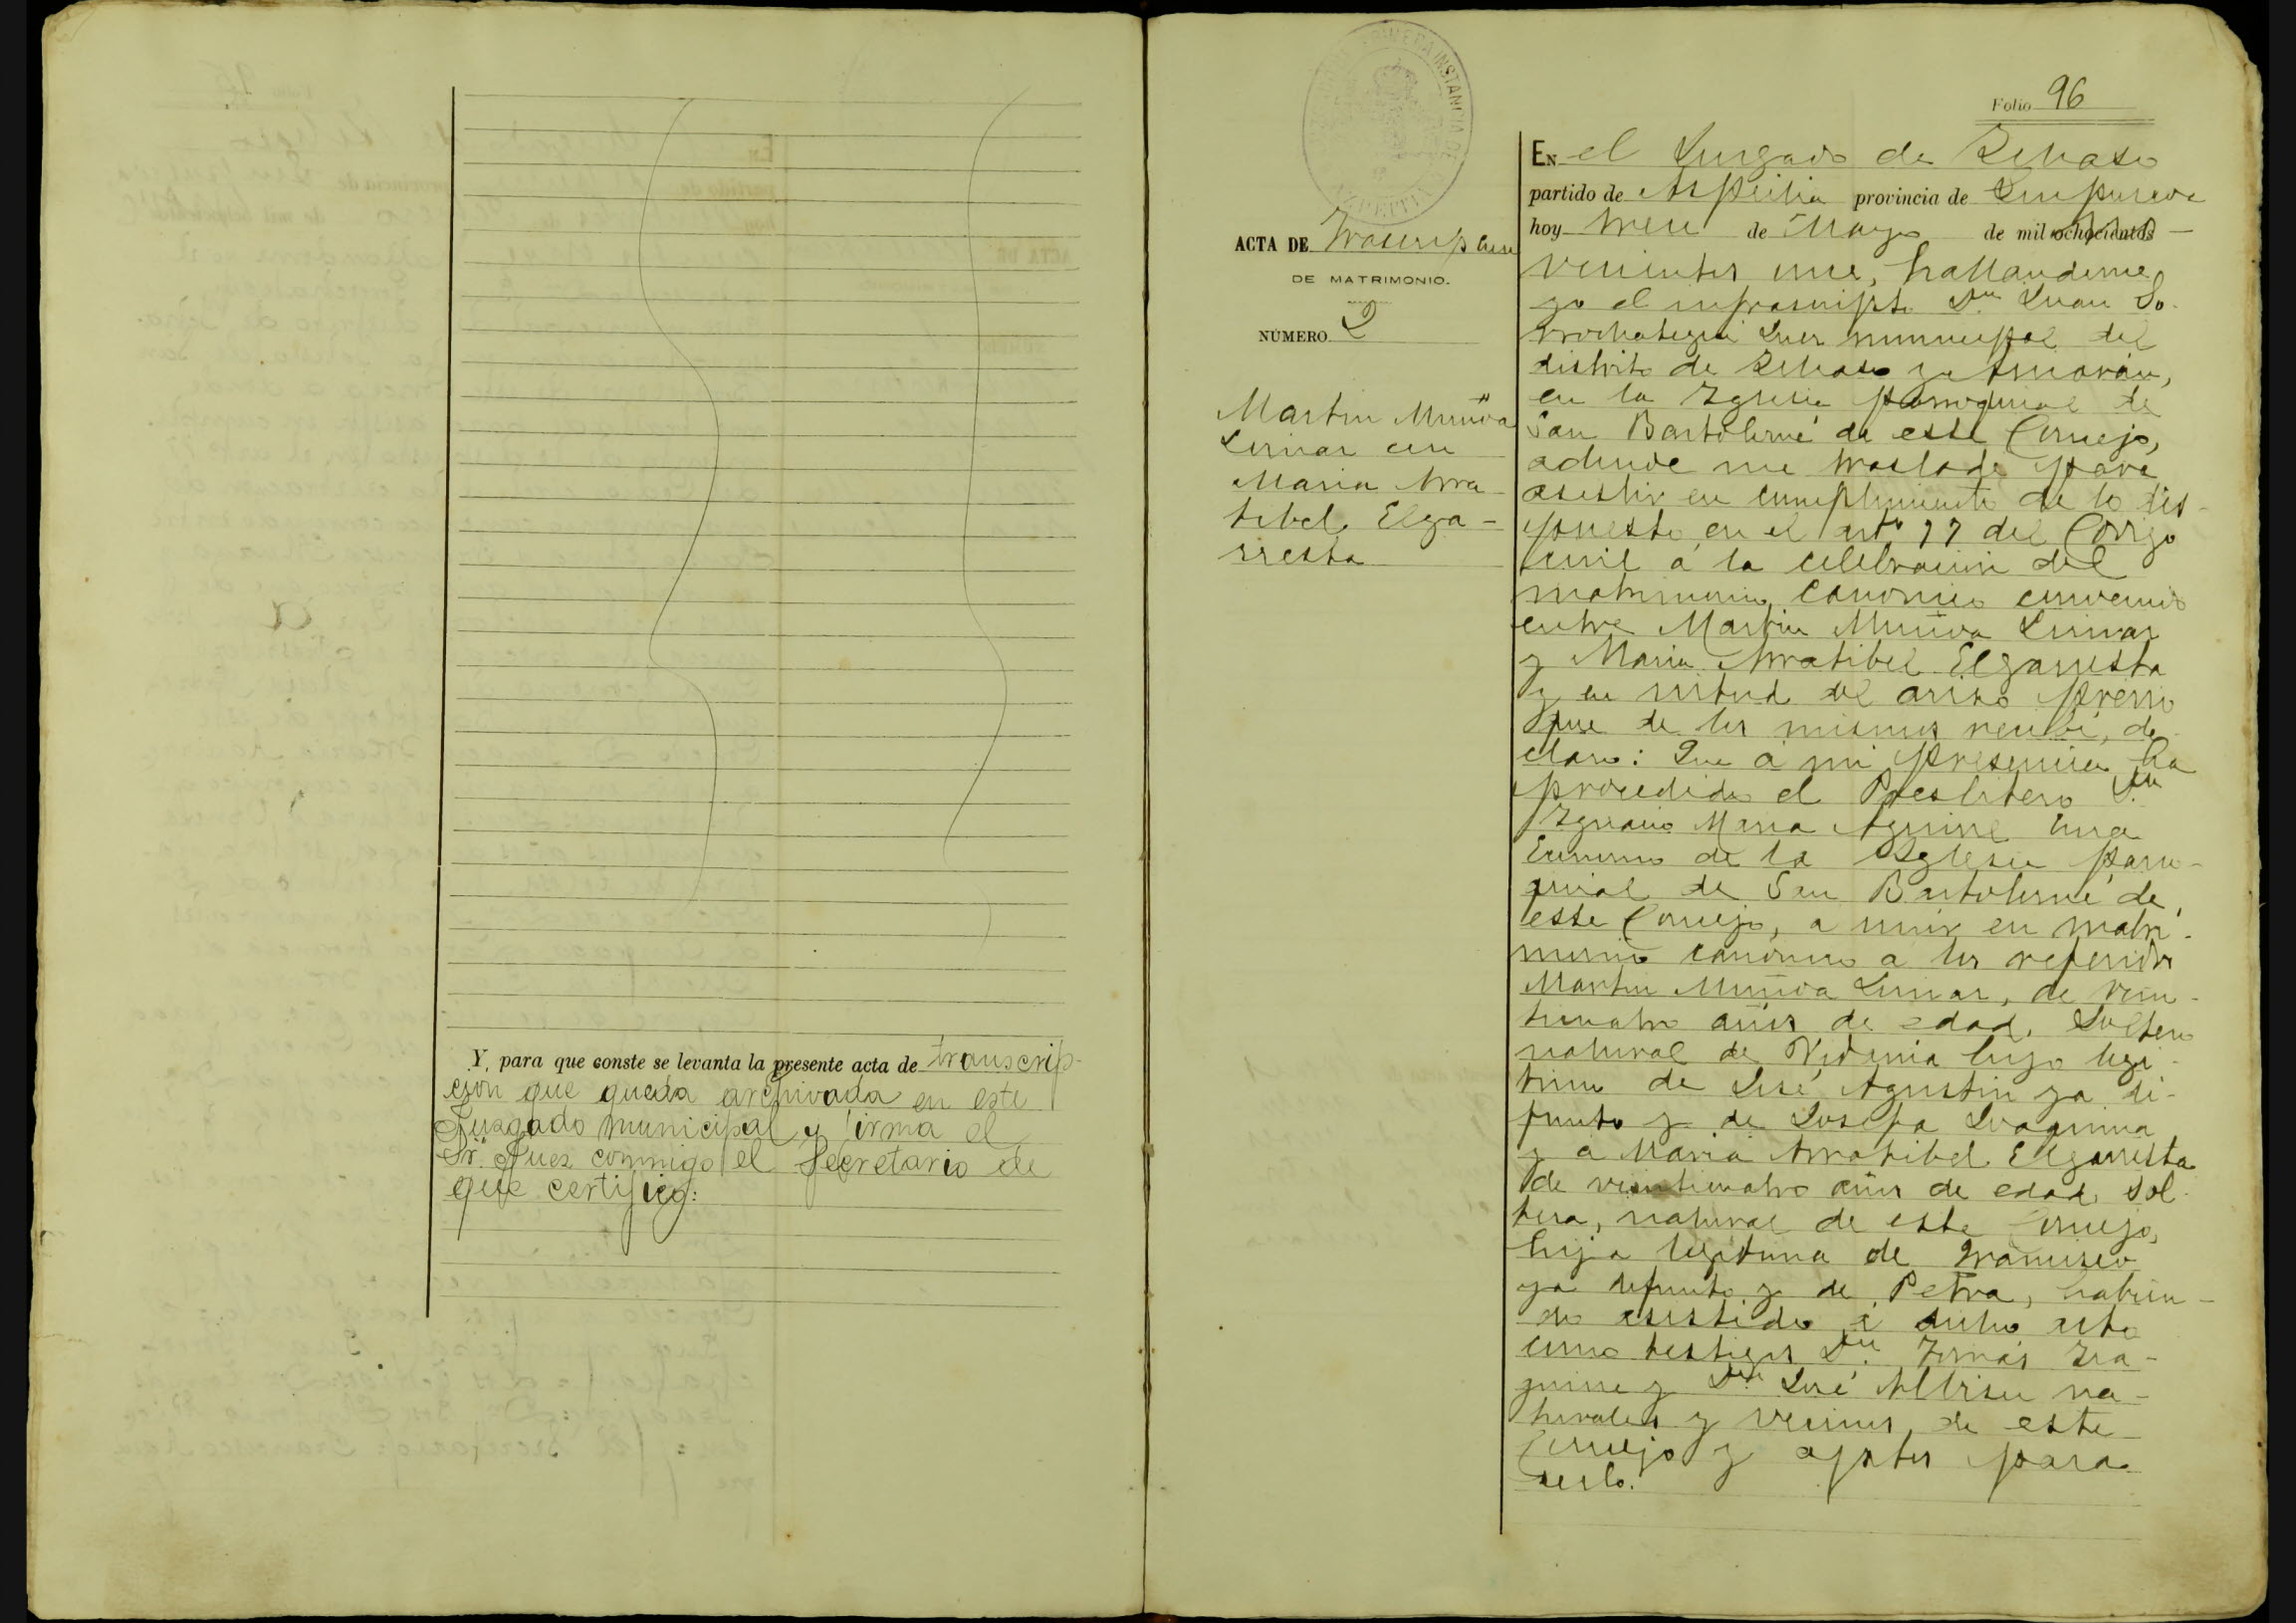 Y, para que conste se levanta la presente acta de transcrip-
cion que queda archivada en este
Juzgado municipal y firma el
Sr. Juez conmigo el Secretario de
que certifico:
PRIMERA INSTANCIA DE
AZPEITIA
Folio 96
ACTA DE Trascripcion
DE MATRIMONIO.
NÚMERO 2
Martin Munoa
con
Maria Arra-
tibel Elga-
rresta
En el Juzgado de
partido de Azpeitia provincia de Guipuzcoa
hoy trece de Mayo de mil ochocientos
novecientos once, hallandome
yo el infrascripto Dn. Juan So-
rrochategui Juez municipal del
distrito de
en la Iglesia parroquial de
San Bartolomé de este Concejo,
adonde me traslade para
asistir en cumplimiento de lo dis-
puesto en el art.º 77 del Codigo
civil á la celebracion del
matrimonio canonico convenido
entre Martin Munoa
y Maria Arratibel Elgarresta
y en virtud del aviso previo
que de los mismos recibi, de-
claro: Que á mi presencia ha
procedido el Presbitero Dn.
Ignacio Maria Aguirre Cura
Ecónomo de la Iglesia parro-
quial de San Bartolomé de
este Concejo, a unir en matri-
monio canonico a los referidos
Martin Munoa, de vein-
ticuatro años de edad, Soltero
natural de Vidania hijo legi-
timo de José Agustin ya di-
funto y de Josefa Joaquina
y á Maria Arratibel Elgarresta
de veinticuatro años de edad, Sol-
tera, natural de este Concejo,
hija legitima de Francisco
ya difunto y de Petra, habien-
do asistido á dicho acto
como testigos Dn. Tomás Iza-
guirre y Dn. José Albisu na-
turales y vecinos de este
Concejo y aptos para
serlo.